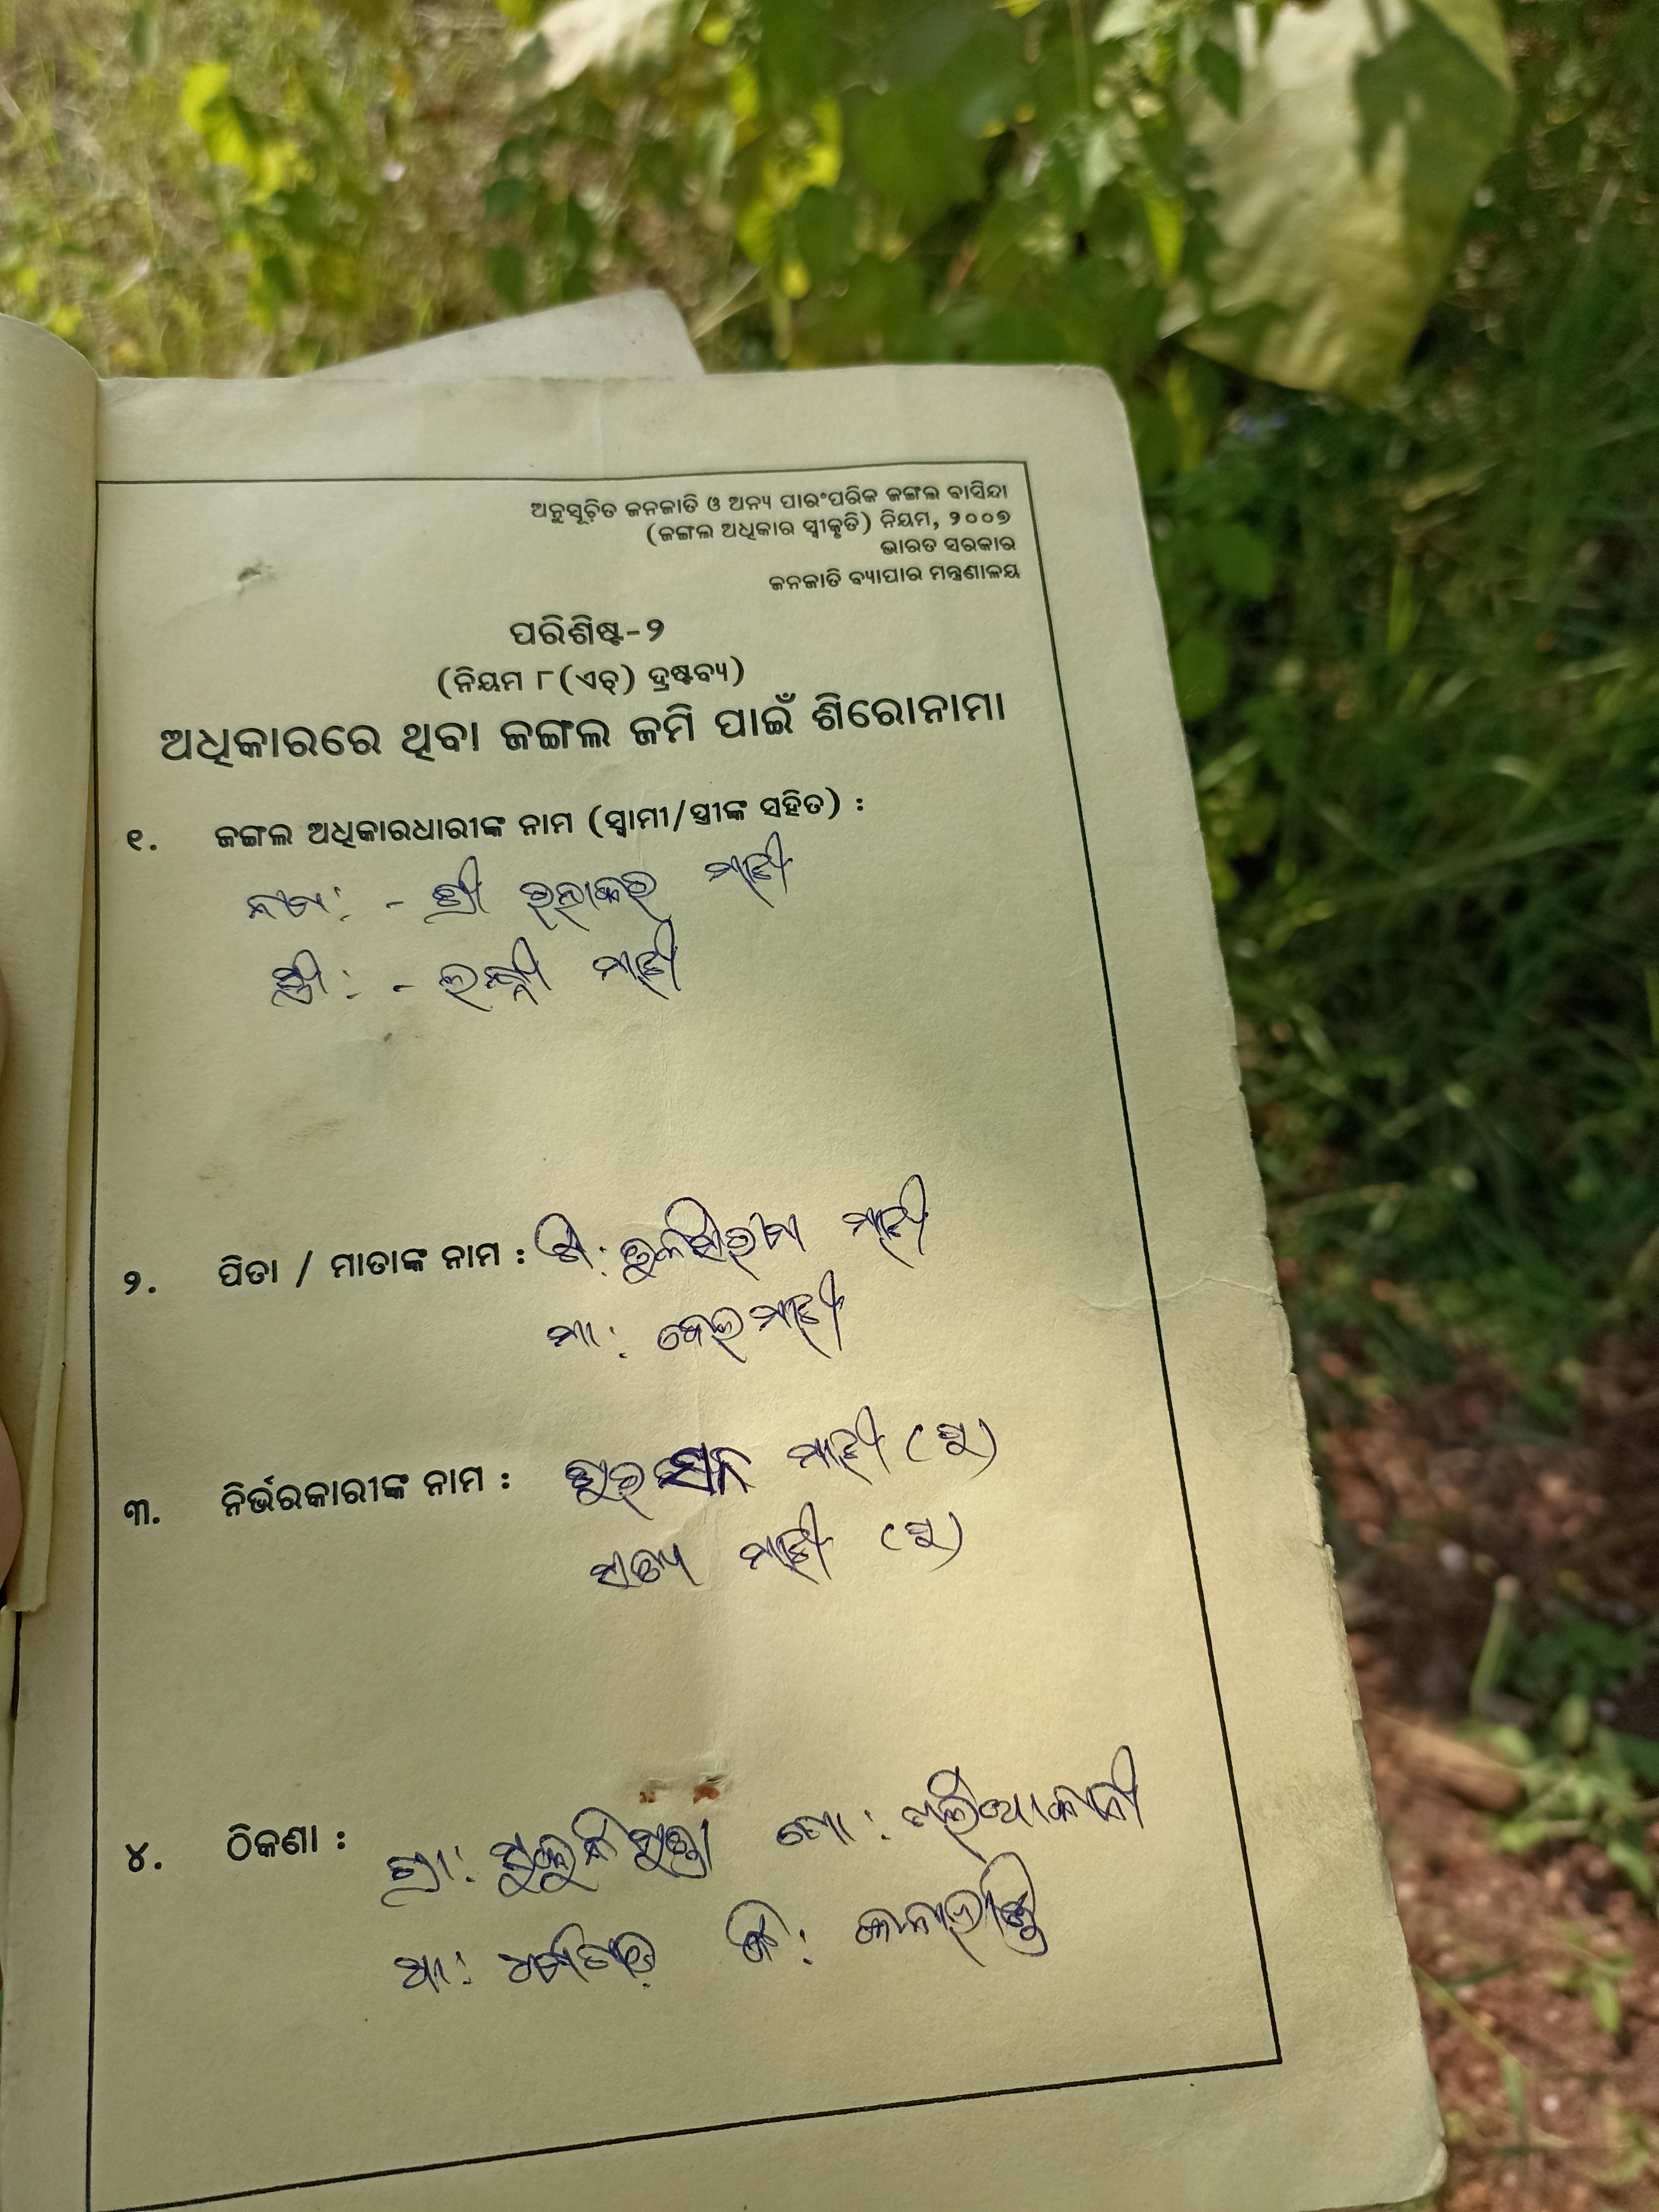 ଅନୁସୂଚିତ ଜନଜାତି ଓ ଅନ୍ୟ ପାରଂପରିକ ଜଙ୍ଗଲ ବାସିନ୍ଦା
(ଜଙ୍ଗଲ ଅଧିକାର ସ୍ୱୀକୃତି) ନିୟମ, ୨୦୦୭
ଭାରତ ସରକାର
ଜନଜାତି ବ୍ୟାପାର ମନ୍ତ୍ରଣାଳୟ
ପରିଶିଷ୍ଟ-୨
(ନିୟମ ୮(ଏଚ୍) ଦ୍ରଷ୍ଟବ୍ୟ)
ଅଧିକାରରେ ଥିବା ଜଙ୍ଗଲ ଜମି ପାଇଁ ଶିରୋନାମା
୧. ଜଙ୍ଗଲ ଅଧିକାରଧାରୀଙ୍କ ନାମ (ସ୍ୱାମୀ/ସ୍ତ୍ରୀଙ୍କ ସହିତ) :
ନାମ: - ଶ୍ରୀ ରତ୍ନାକର ମାଝୀ
ସ୍ତ୍ରୀ: - ଲକ୍ଷ୍ମୀ ମାଝୀ
୨. ପିତା / ମାତାଙ୍କ ନାମ : ପି: ତୁଳସୀରାମ ମାଝୀ
ମା: ମାଝୀ
୩. ନିର୍ଭରକାରୀଙ୍କ ନାମ : ମାଝୀ (ପୁ)
ସତ୍ୟ ମାଝୀ (ପୁ)
୪. ଠିକଣା : ଗ୍ରା: ପୋ:
ଥା: ଧର୍ମଗଡ଼ ଜି: କଳାହାଣ୍ଡି